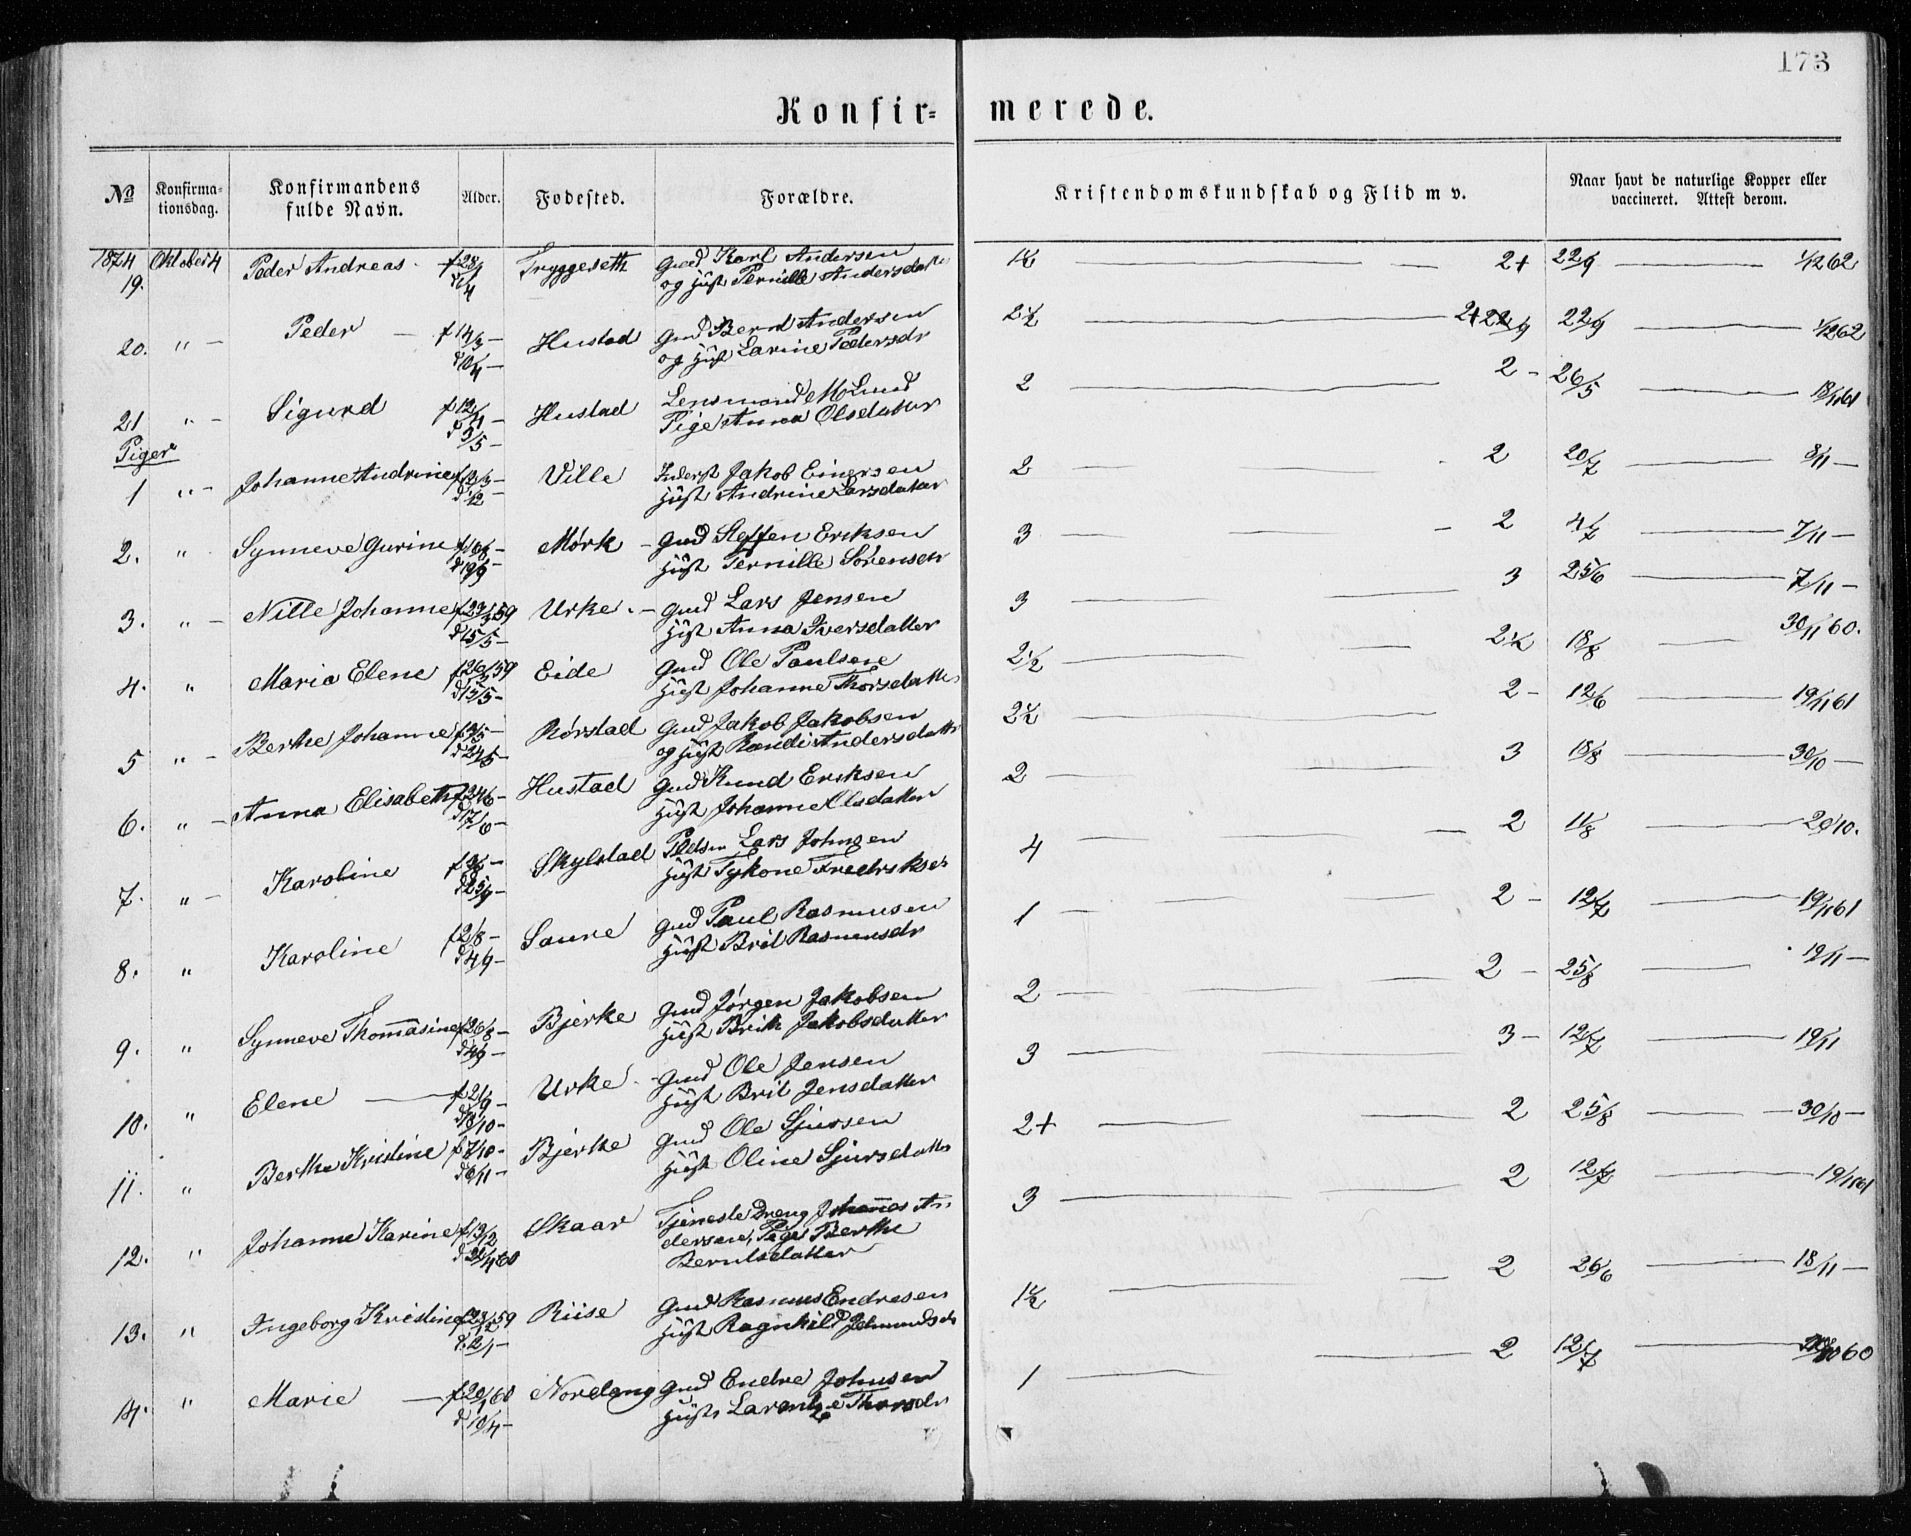 173
Konfir= merede.
№ Konfirma-tionsdag. Konfirmandens fulde Navn. Alder. Fødested. Forældre. Kristendomskundskab og Flid m v. Naar havt de naturlige Kopper eller vaccineret. Attest derom.
1874 Oktober 4 Peder Andreas Tryggeseth Gmd Karl Andersen 1½ 2+ 22/9 62
19. og Hust Pernille Andersdatter
20. " Peder f 14/3 Hustad Gmd Bernt Andersen 2½ 2+ 22/9 22/9 62
d 10/4 og Hust Larine Pedersdr
21 " Sigurd f 12/4 Hustad Lensmand M Lund 2 2 - 26/5
d 5/5 Pige Anna Olsdatter
Piger
1 " Johanne Andrine Ville Inderst Jakob Einersen 2 2 20/7 8/11
Hust Andrine Larsdatter
2. " Synneve Gurine Mørk Gmd Steffen Eriksen 3 2 4/7 7/11
Hust Pernille Sørensdr
3. " Nille Johanne f 23/3 59 Urke Gmd Lars Jensen 3 3 25/6 7/11
d 15/5 Hust Anna Iversdatter
4. " Maria Elene f 26/3 59 Eide Gmd Ole Paulsen 2½ 2½ 18/8 30/11 60.
d 15/5 Hust Johanne Thorsdatter
5 " Berthe Johanne Rørstad Gmd Jakob Jakobsen 2½ 2 - 12/6 19/11 61
d 24/5 og Hust Randi Andersdatter
6. " Anna Elisabeth f 24/6 Hustad Gmd Knud Eriksen 2 3 18/8 30/10
d 17/6 Hust Johanne Olsdatter
7. " Karoline Skylstad Pldsm Lars Johnsen 4 2 11/8 29/10.
d 25/9 Hust
8. " Karoline f 2/8 Saure Gmd Paul Rasmusen 1 2 - 12/7 19/11 61
d 4/9 Hust Brit Rasmusdr
9. " Synneve Thomasine f 26/8 Bjerke Gmd Jørgen Jakobsen 2 2 - 25/8 19/11
d 4/9 Hust Brithe Jakobsdatter
10. " Elene f 21/9 Urke Gmd Ole Jensen 3 3 - 12/7 19/11
d 8/10 Hust Brit Jensdatter
11. " Berthe Kristine f 7/10 Bjerke Gmd Ole Sjursen 2+ 2 25/8 30/10
d 6/11 Hust Oline Sjursdatter
12. " Johanne Karine f 13/12 Skaar Tjeneste Dreng Johannes An- 3 2 12/7 19/11 61
dersen, Pige Berthe
Berntsdatter
13. " Ingeborg Kristine f 23/12 59 Riise Gmd Rasmus Endresen 1½ 2 26/6 18/11
d 2/1 Hust Ragnhild
14. " Marie f 20/1 60 Nordang Gmd Endre Johnsen 1 2 12/7 60
d 10/4 Hust Larentze Thorsdr